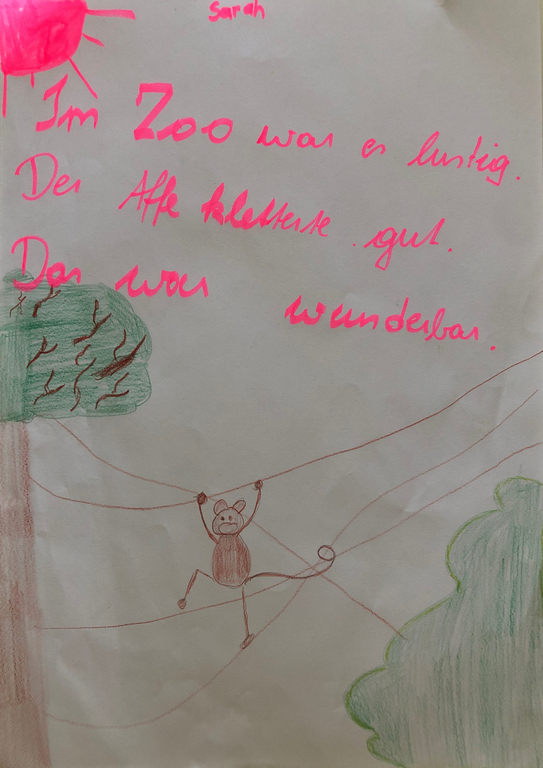 Sarah
Im Zoo war es lustig.
Der Affe kletterte gut.
Das war wunderbar.